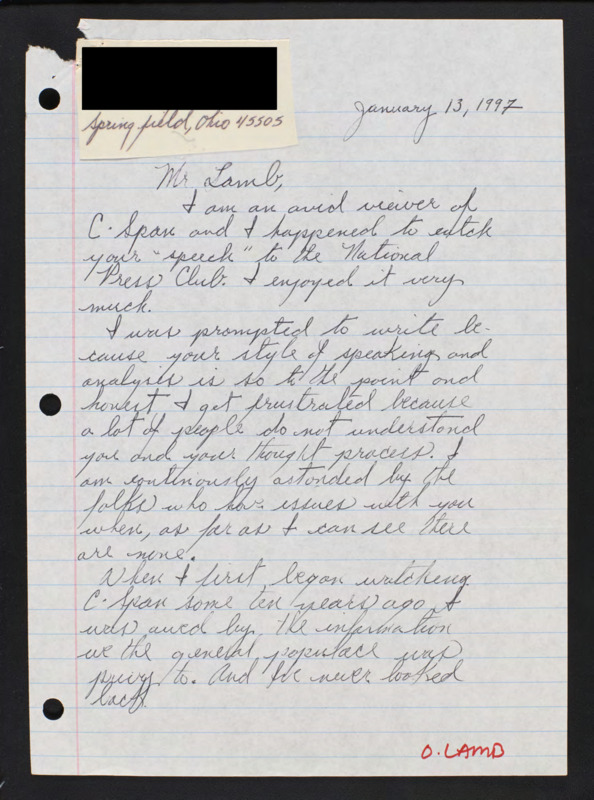 Springfield, Ohio 45505
January 13, 1997
Mr. Lamb,
I am an avid viewer of
C-Span and I happened to catch
your "speech" to the National
Press Club. I enjoyed it very
much.
I was prompted to write be-
cause your style of speaking and
analysis is so to the point and
honest I get frustrated because
a lot of people do not understand
you and your thought process. I
am continously astonded by the
folks who have issues with you
when, as far as I can see there
are none.
When I first began watching
C-Span some ten years ago I
was awed by the information
we the general populace was
privy to. And I've never looked
back.
O. LAMB